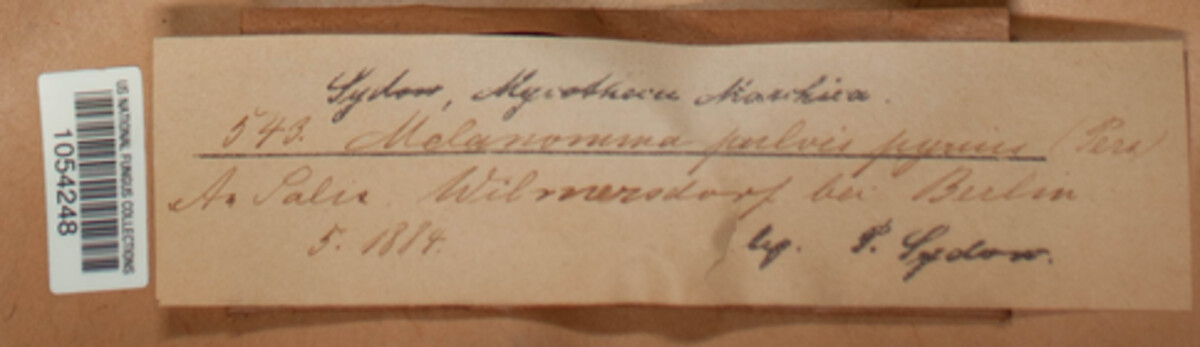 US NATIONAL FUNGUS COLLECTIONS
1054248
Sydow, Mycotheca Marchica.
543. Melanomma pulvis pyrius (Pers)
An Salix. Wilmersdorf bei Berlin
5. 1884.
leg. P. Sydow.